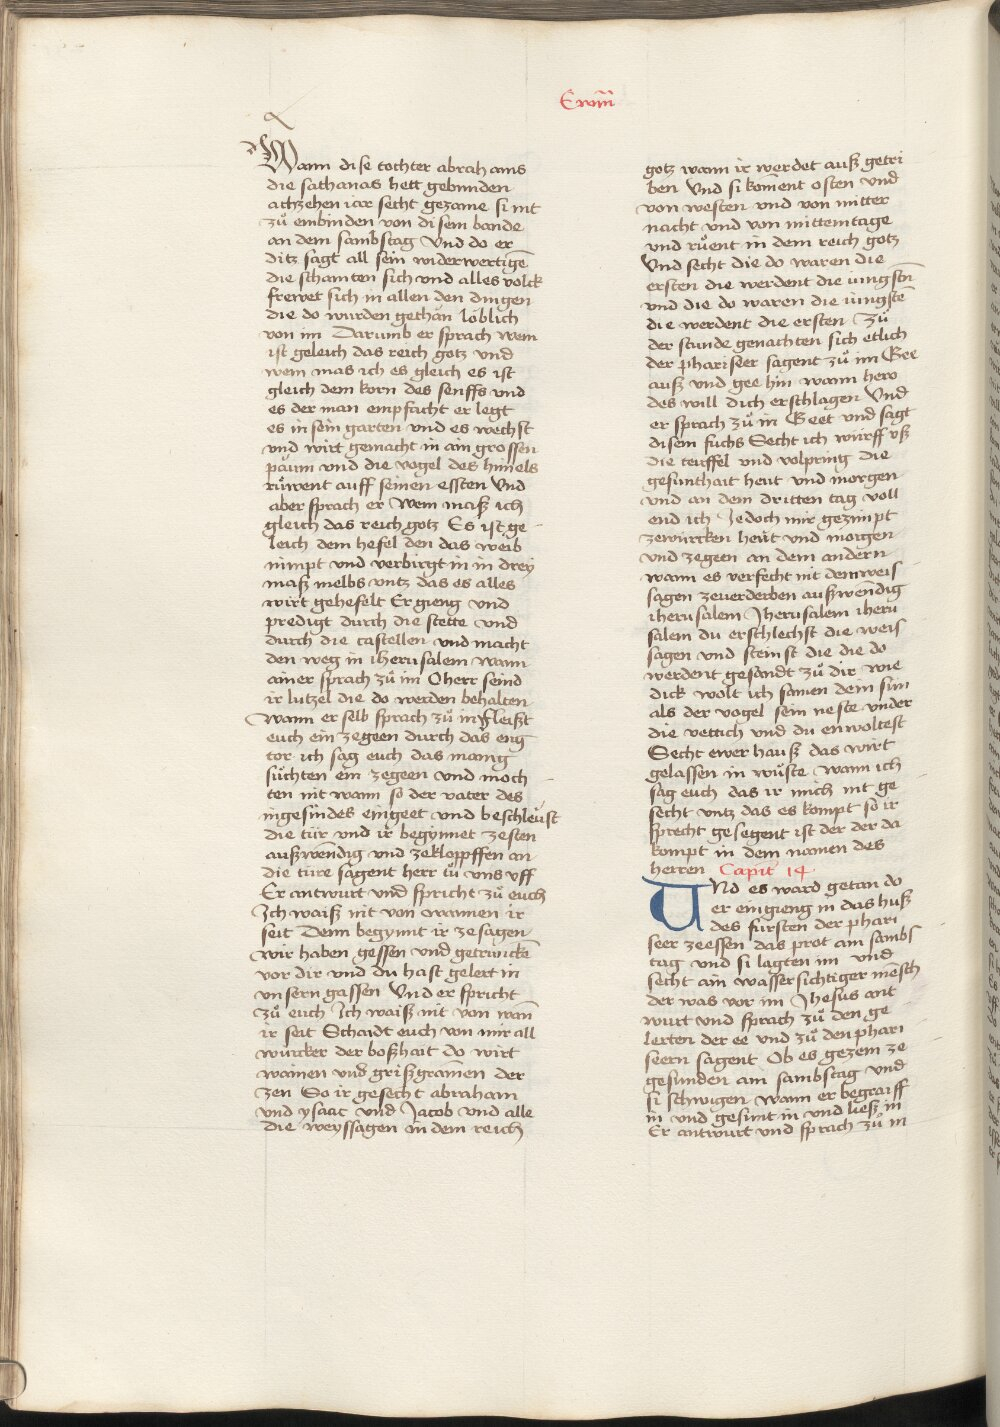 Wann dise tochter abrahams
die sathanas hett gebunden
achzehen iar secht gezame si nit
zů embinden von disem bande
an dem sambstag Vnd do er
ditz sagt all sein widerwertigē
die schamten sich vnd alles volck
frewet sich in allen den dingen
die do wurden gethan löblich
von im Darumb er sprach wem
ist geleich das reich gotz vnd
wem mas ich es gleich es ist
gleich dem korn des senffs vnd
es der man empfächt er legt
es in sein garten vnd es wechst
vnd wirt gemacht in ain grossen
paüm vnd die vogel des himels
rüwent auff seinen essten Vnd
aber sprach er Wem masz ich
gleich das reich gotz Es ist ge
leich dem hefel den das weib
nimpt vnd verbirgt in in drey
masz melbs vntz das es alles
wirt gehefelt Er gieng vnd
predigt durch die stette vnd
durch die castellen vnd macht
den weg in iherusalem wann
ainer sprach zů im O herr seind
ir lutzel die do werden behalten
wann er selb sprach zů in fleiszt
euch ein zegeen durch das eng
tor ich sag euch das manig
sůchten ein zegeen vnd moch
ten nit wann so der vater des
ingesindes eingeet vnd beschleüst
die tür vnd ir begynnet zesten
auszwendig vnd zekloppffen an
die türe sagent herr tů vns vff
Er antwurt vnd spricht zů euch
Ich waisz nit von wannen ir
seit Denn begynnt ir ze sagen
wir haben gessen vnd getrunckē
vor dir vnd du hast gelert in
vnsern gassen Vnd er spricht
zů euch Ich waisz nit von wañ
ir seit Schaidt euch von mir all
würcker der boszhait do wirt
wainen vnd griszgramen der
zen So ir gesecht abraham
vnd ysaac vnd Jacob vnd alle
die weyssagen in dem reich
gotz wann ir werdet ausz getri
ben Vnd si koment osten vnd
von westen vnd von mitter
nacht vnd von mittemtage
vnd rüent in dem reich gotz
Vnd secht die do waren die
ersten die werdent die iungsten
vnd die do waren die iüngstē
die werdent die ersten Zů
der stunde genachten sich etlich
der phariseer sagent zů im Gee
ausz vnd gee hin wann hero
des will dich erschlagen Vnd
er sprach zů in Geet vnd sagt
disem fuchs Secht ich würff vsz
die teuffel vnd volpring die
gesunthait heut vnd morgen
vnd an dem dritten tag voll
end ich Jedoch mir gezimpt
zewürcken heüt vnd morgen
vnd zegeen an dem andern
wann es verfecht nit dem weis
sagen zeuerderben auszwendig
iherusalem Jherusalem iheru
salem du erschlechst die weis
sagen vnd steinst die die do
werdent gesandt zů dir wie
dick wolt ich samen dein sün
als der vogel sein neste vnder
die vettich vnd du enwoltest
Secht ewer hausz das wirt
gelassen in wüste wann ich
sag euch das ir mich nit ge
secht vntz das es kompt so ir
sprecht gesegent ist der der da
kompt in dem namen des
herren Capitl 14
Und es ward getan do
er eingieng in das husz
des fürsten der phari
seer zeessen das prot am sambs
tag vnd si lagten im vnd
secht ain wassersichtiger mēsch
der was vor im Jhesus ant
wurt vnd sprach zů den ge
lerten der ee vnd zů den phari
seern sagent Ob es gezem ze
gesunden am sambstag vnd
si schwigen wann er begraiff
in vnd gesunt in vnd liesz in
Er antwurt vnd sprach zů in